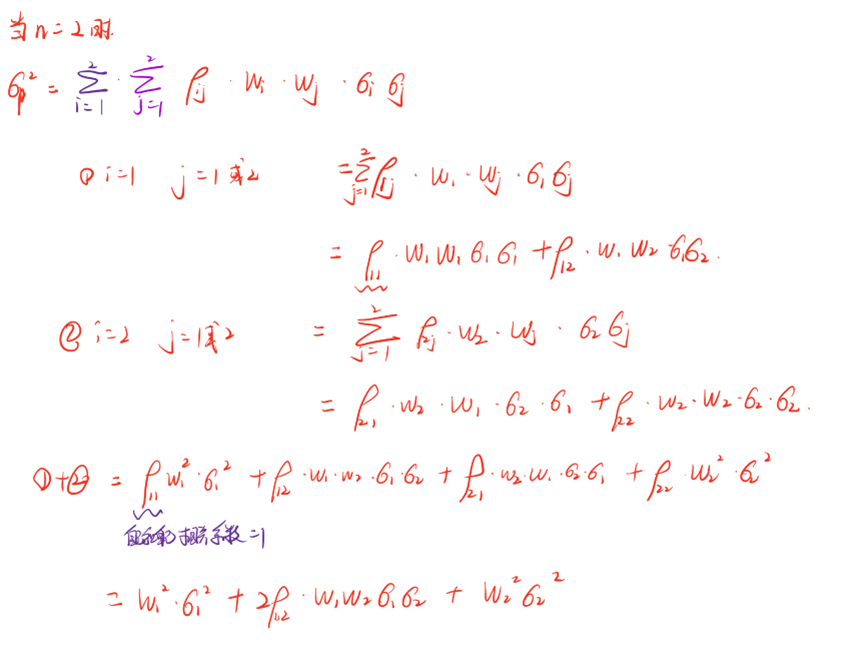 当n=2时.
σp² = ∑_{i=1}^{2} · ∑_{j=1}^{2} ρij · Wi · Wj · σi σj
① i=1 j=1或2 = ∑_{j=1}^{2} ρ1j · W1 · Wj · σ1 σj
= ρ11 · W1 W1 σ1 σ1 + ρ12 · W1 W2 · σ1σ2.
② i=2 j=1或2 = ∑_{j=1}^{2} ρ2j · W2 · Wj · σ2 σj
= ρ21 · W2 · W1 · σ2 · σ1 + ρ22 · W2 · W2 · σ2 · σ2.
①+② = ρ11 W1² · σ1² + ρ12 · W1 · W2 · σ1 · σ2 + ρ21 · W2 · W1 · σ2 · σ1 + ρ22 · W2² · σ2²
自己和自己相关系数=1
= W1² · σ1² + 2ρ12 · W1W2 σ1 σ2 + W2² σ2²